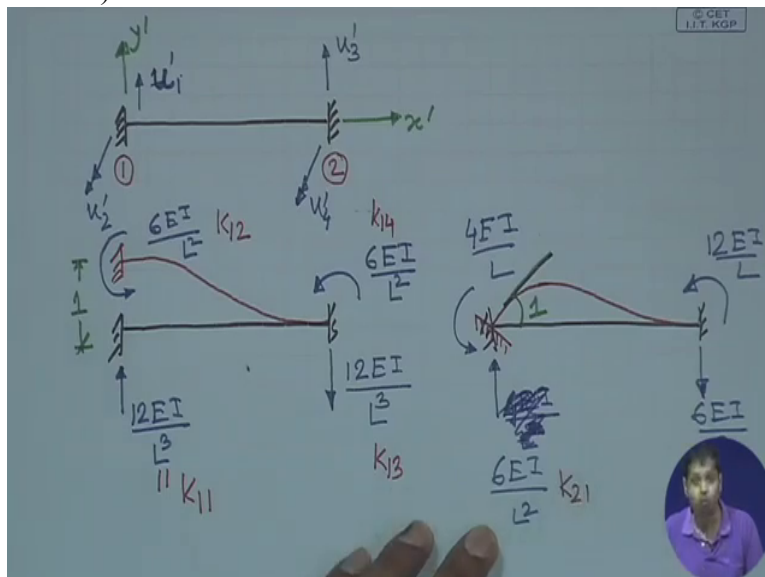 © CET
I.I.T. KGP
y'
u'₁
u'₃
x'
①
②
u'₂
u'₄
6EI/L² K₁₂
K₁₄
6EI/L²
1
12EI/L³
" K₁₁
12EI/L³
K₁₃
4EI/L
12EI/L
1
6EI/L² K₂₁
6EI